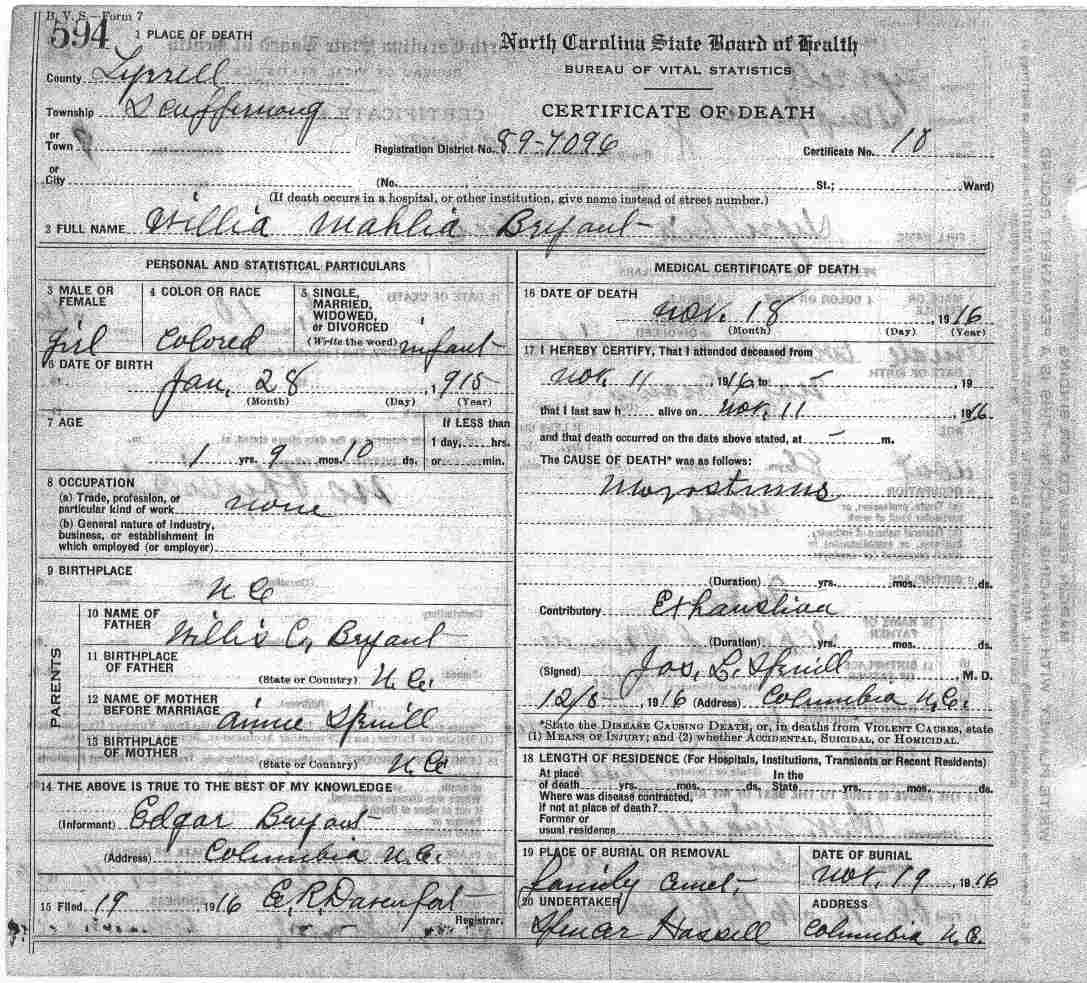 B. V. S.—Form 7
594
1 PLACE OF DEATH
North Carolina State Board of Health
BUREAU OF VITAL STATISTICS
CERTIFICATE OF DEATH
County Tyrrell
Township Scuppernong
or
Town
Registration District No. 89-7096 Certificate No. 18
or
City (No. St.; Ward)
(If death occurs in a hospital, or other institution, give name instead of street number.)
2 FULL NAME Willia Mahlia Bryant
PERSONAL AND STATISTICAL PARTICULARS
3 MALE OR FEMALE girl
4 COLOR OR RACE Colored
5 SINGLE, MARRIED, WIDOWED, or DIVORCED (Write the word) infant
6 DATE OF BIRTH
Jan, 28, 1915
(Month) (Day) (Year)
7 AGE
If LESS than
1 day, hrs.
or min.
1 yrs. 9 mos. 10 ds.
8 OCCUPATION
(a) Trade, profession, or
particular kind of work none
(b) General nature of industry,
business, or establishment in
which employed (or employer)
9 BIRTHPLACE
N C
PARENTS
10 NAME OF FATHER Willis C, Bryant
11 BIRTHPLACE OF FATHER
(State or County) N. C.
12 NAME OF MOTHER BEFORE MARRIAGE Annie Spruill
13 BIRTHPLACE OF MOTHER
(State or Country) N. C
14 THE ABOVE IS TRUE TO THE BEST OF MY KNOWLEDGE
(Informant) Edgar Bryant
(Address) Columbia N. C.
15 Filed 19 1916 E. R. Davenport
Registrar.
MEDICAL CERTIFICATE OF DEATH
16 DATE OF DEATH
Nov. 18, 1916
(Month) (Day) (Year)
17 I HEREBY CERTIFY, That I attended deceased from
Nov. 11 1916 to - 19
that I last saw h alive on Nov. 11 1916
and that death occurred on the date above stated, at - m.
The CAUSE OF DEATH* was as follows:
(Duration) yrs. mos. ds.
Contributory Exhaustion
(Duration) yrs. mos. ds.
(Signed) Jos. L. Spruill, M. D.
12/8 1916 (Address) Columbia N. C.
*State the DISEASE CAUSING DEATH, or, in deaths from VIOLENT CAUSES, state
(1) MEANS OF INJURY; and (2) whether ACCIDENTAL, SUICIDAL, or HOMICIDAL.
18 LENGTH OF RESIDENCE (For Hospitals, Institutions, Transients or Recent Residents)
At place In the
of death yrs. mos. ds. State yrs. mos. ds.
Where was disease contracted,
if not at place of death?
Former or
usual residence
19 PLACE OF BURIAL OR REMOVAL
family cemet.
DATE OF BURIAL
Nov. 19, 1916
20 UNDERTAKER
Spencer Hassell
ADDRESS
Columbia N. C.